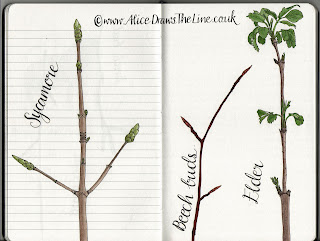 ©www.AliceDrawsTheLine.co.uk
Sycamore
Beech buds
Elder